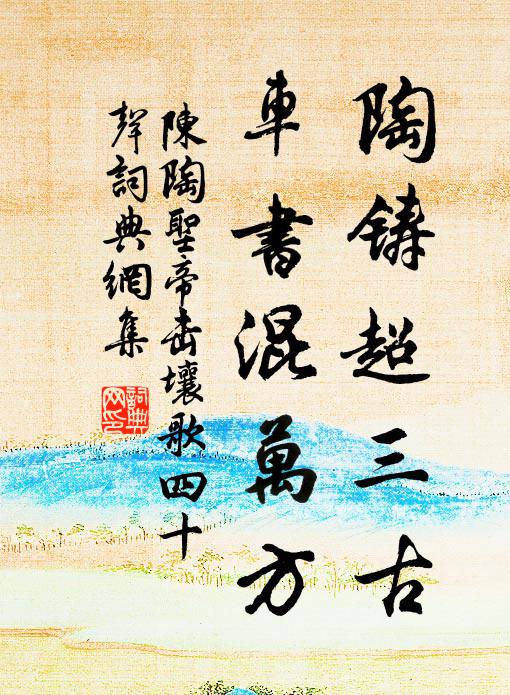 陶鑄超三古
車書混萬方
陳陶聖帝击壤歌四十
聲詞典網集
詞典網印